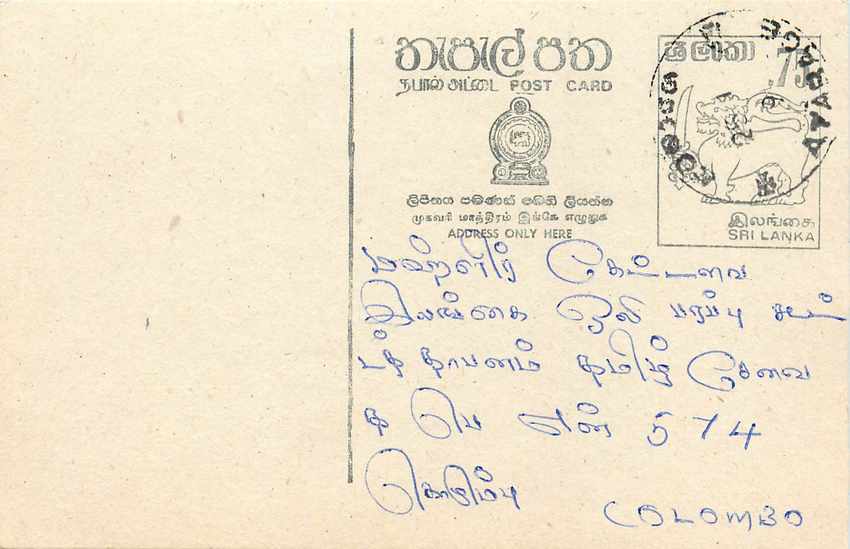 තැපැල් පත
தபால் அட்டை POST CARD
ලිපිනය පමණක් මෙහි ලියන්න
முகவரி மாத்திரம் இங்கே எழுதுக
ADDRESS ONLY HERE
ශ්‍රී ලංකා
.75
இலங்கை
SRI LANKA
மகளிர் கேட்டவை
இலங்கை ஒலி பரப்பு கூட்
டத் தாபனம் தமிழ் சேவை
த பெ எண் 574
கொழும்பு
COLOMBO